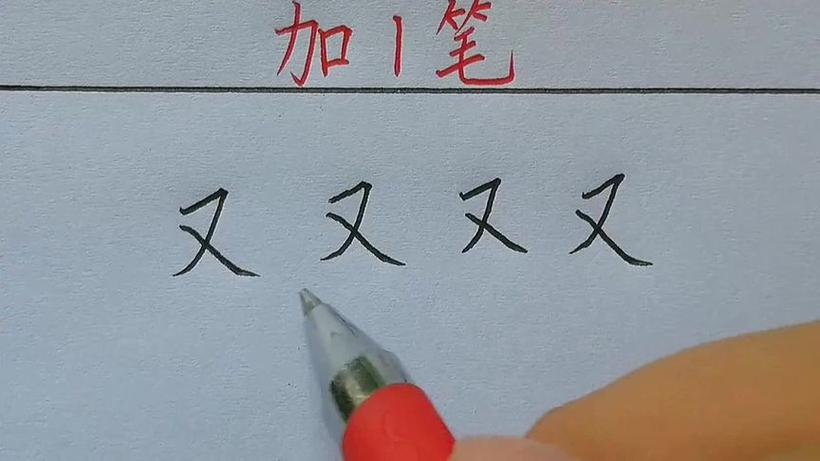 加1笔
又 又 又 又